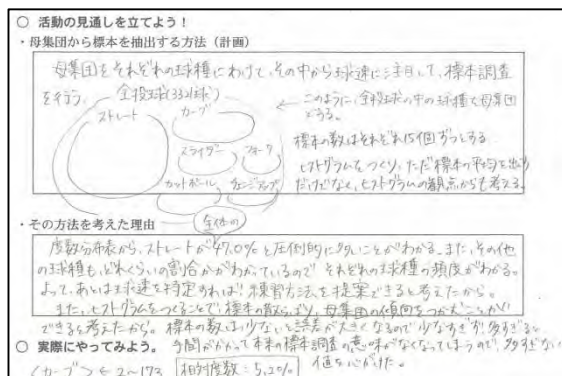 ○ 活動の見通しを立てよう！
・母集団から標本を抽出する方法（計画）
母集団をそれぞれの球種にわけて、その中から球速に注目して、標本調査
を行う。 全投球(332球) ← このように、全投球の中の球種を母集団
とする。
ストレート カーブ
標本の数はそれぞれ15個ずつとする。
スライダー フォーク
ヒストグラムをつくり、ただ標本の平均を出す
カットボール チェンジアップ
だけでなく、ヒストグラムの観点からも考える。
・その方法を考えた理由
全体の
度数分布表から、ストレートが47.0%と圧倒的に多いことがわかる。また、その他
の球種も、どれくらいの割合かがわかっているので それぞれの球種の頻度がわかる。
よって、あとは球速を特定すれば、練習方法を提案できると考えたから。
また、ヒストグラムをつくることで、標本の散らばり、母集団の傾向をつかむことが
できると考えたから。標本の数は少ないと誤差が大きくなるので少なすぎず、多すぎると
手間がかかって本来の標本調査の意味がなくなってしまうので、多すぎない
値を心がけた。
○ 実際にやってみよう。
<カーブ> 2〜173 相対度数：5.2%